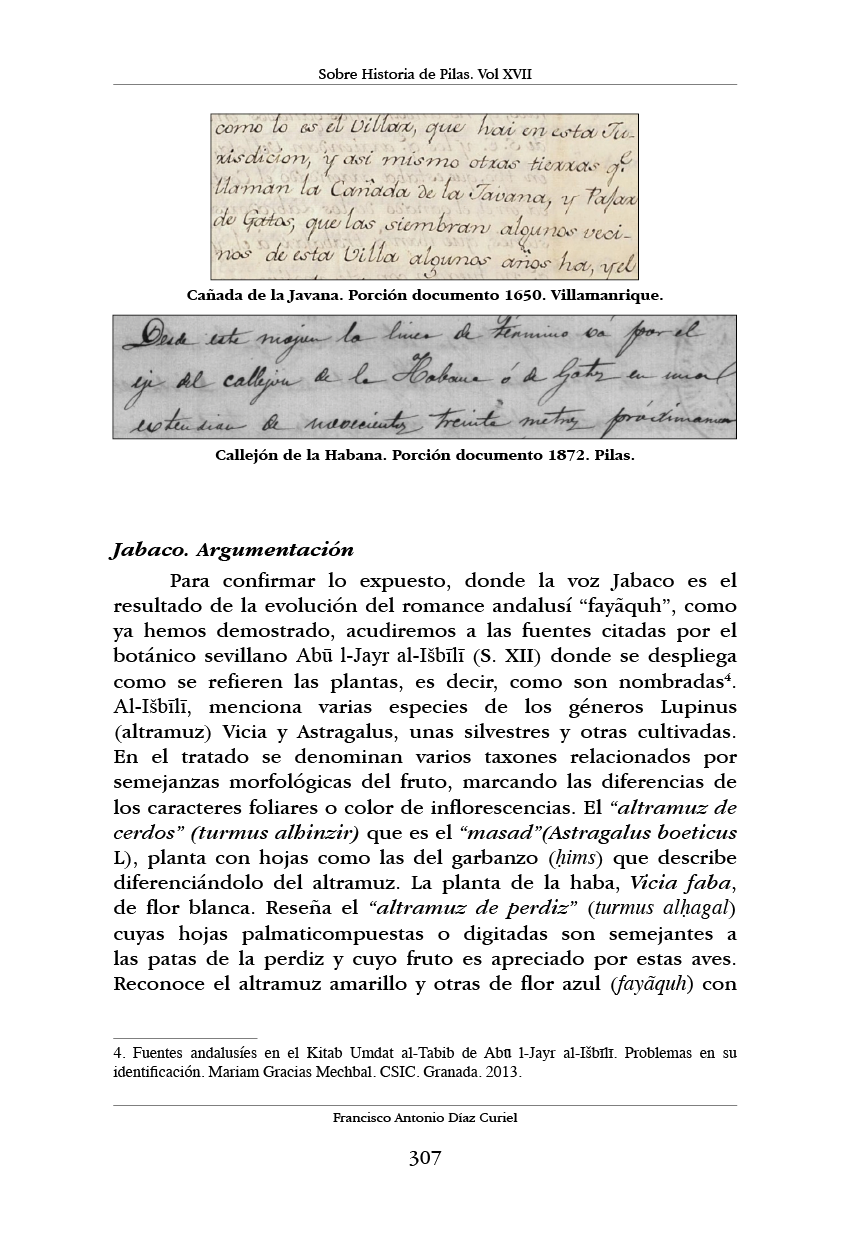 Sobre Historia de Pilas. Vol XVII
como lo es el Villar, que hai en esta Ju-
risdicion, y asi mismo otras tierras q.e
llaman la Cañada de la Javana, y Pajar
de Gatos, que las siembran algunos veci-
nos de esta Villa algunos años ha, y el
Cañada de la Javana. Porción documento 1650. Villamanrique.
Desde este mojon la linea de término vá por el
eje del callejon de la Habana ó de Gatos en una
extension de novecientos treinta metros próximamen
Callejón de la Habana. Porción documento 1872. Pilas.
Jabaco. Argumentación
Para confirmar lo expuesto, donde la voz Jabaco es el
resultado de la evolución del romance andalusí “fayãquh”, como
ya hemos demostrado, acudiremos a las fuentes citadas por el
botánico sevillano Abū l-Jayr al-Išbīlī (S. XII) donde se despliega
como se refieren las plantas, es decir, como son nombradas⁴.
Al-Išbīlī, menciona varias especies de los géneros Lupinus
(altramuz) Vicia y Astragalus, unas silvestres y otras cultivadas.
En el tratado se denominan varios taxones relacionados por
semejanzas morfológicas del fruto, marcando las diferencias de
los caracteres foliares o color de inflorescencias. El “altramuz de
cerdos” (turmus alhinzir) que es el “masad”(Astragalus boeticus
L), planta con hojas como las del garbanzo (ḥims) que describe
diferenciándolo del altramuz. La planta de la haba, Vicia faba,
de flor blanca. Reseña el “altramuz de perdiz” (turmus alḥagal)
cuyas hojas palmaticompuestas o digitadas son semejantes a
las patas de la perdiz y cuyo fruto es apreciado por estas aves.
Reconoce el altramuz amarillo y otras de flor azul (fayãquh) con
4. Fuentes andalusíes en el Kitab Umdat al-Tabib de Abū l-Jayr al-Išbīlī. Problemas en su
identificación. Mariam Gracias Mechbal. CSIC. Granada. 2013.
Francisco Antonio Díaz Curiel
307